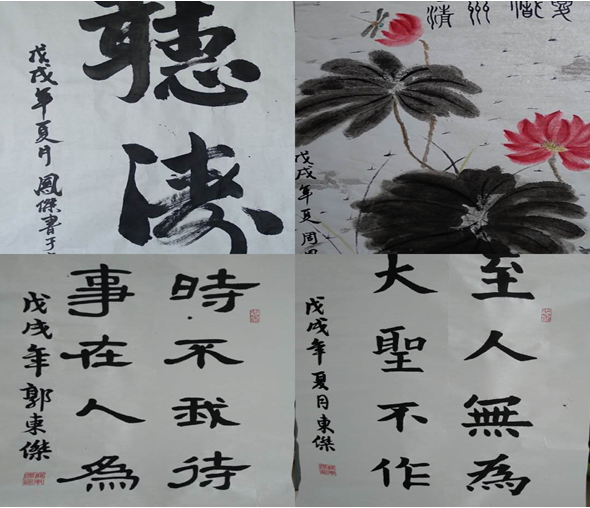 聽濤
戊戌年夏月 鳳傑書于
清
戊戌年夏 周
時不我待
事在人為
戊戌年 郭東傑
至人無為
大聖不作
戊戌年夏月 東傑